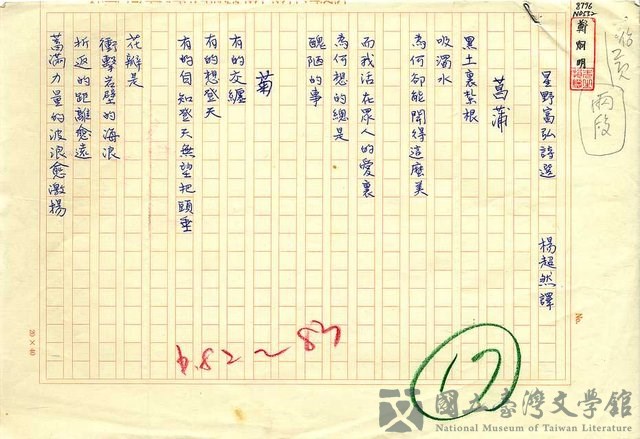 星野富弘詩選
楊超然譯
菖蒲
黑土裏紮根
吸濁水
為何卻能開得這麼美
而我活在眾人的愛裏
為何想的總是
醜陋的事
菊
有的交纏
有的想登天
有的自知登天無望把頭垂
花瓣是
衝擊岩壁的海浪
折返的距離愈遠
蓄滿力量的波浪愈激揚
兩段
8776
鄭炯明
p.82～83
17
20×40
No.
國立臺灣文學館
National Museum of Taiwan Literature